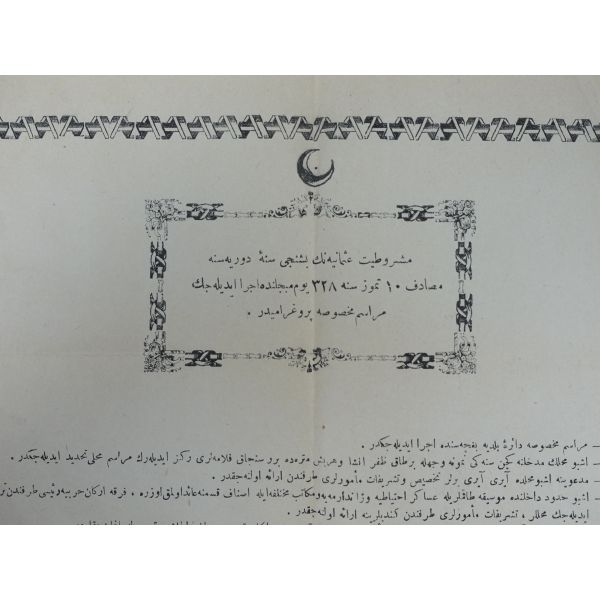 مشروطیت عثمانیه‌نك بشنجی سنهٔ دوریه‌سنه
مصادف ١٠ تموز سنه ٣٢٨ یوم مبجلنده اجرا ایدیله‌جك
مراسم مخصوصه پروغرامیدر .
– مراسم مخصوصه دائرهٔ بلدیه بغچه‌سنده اجرا ایدیله‌جكدر .
– اشبو محلك مدخلنه كچن سنه‌كی نمونه وجهله بر طاق ظفر انشا وهر بش متره‌ده بر سنجاق فلامه‌لری ركز ایدیله‌رك مراسم محلی تحدید ایدیله‌جكدر .
– مدعوینه اشبو محلده آیری آیری یرلر تخصیص وتشریفات مأمورلری طرفندن ارائه اولنه‌جقدر .
– اشبو حدود داخلنده موسیقه طاقملریله عساكر احتیاطیه وژاندارمه‌یه ومكاتب مختلفه ایله اصناف قسمنه عائد اولمق اوزره ، فرقه اركان حربیه رئیسی طرفندن
ایدیله‌جك محللر ، تشریفات مأمورلری طرفندن كندیلرینه ارائه اولنه‌جقدر .